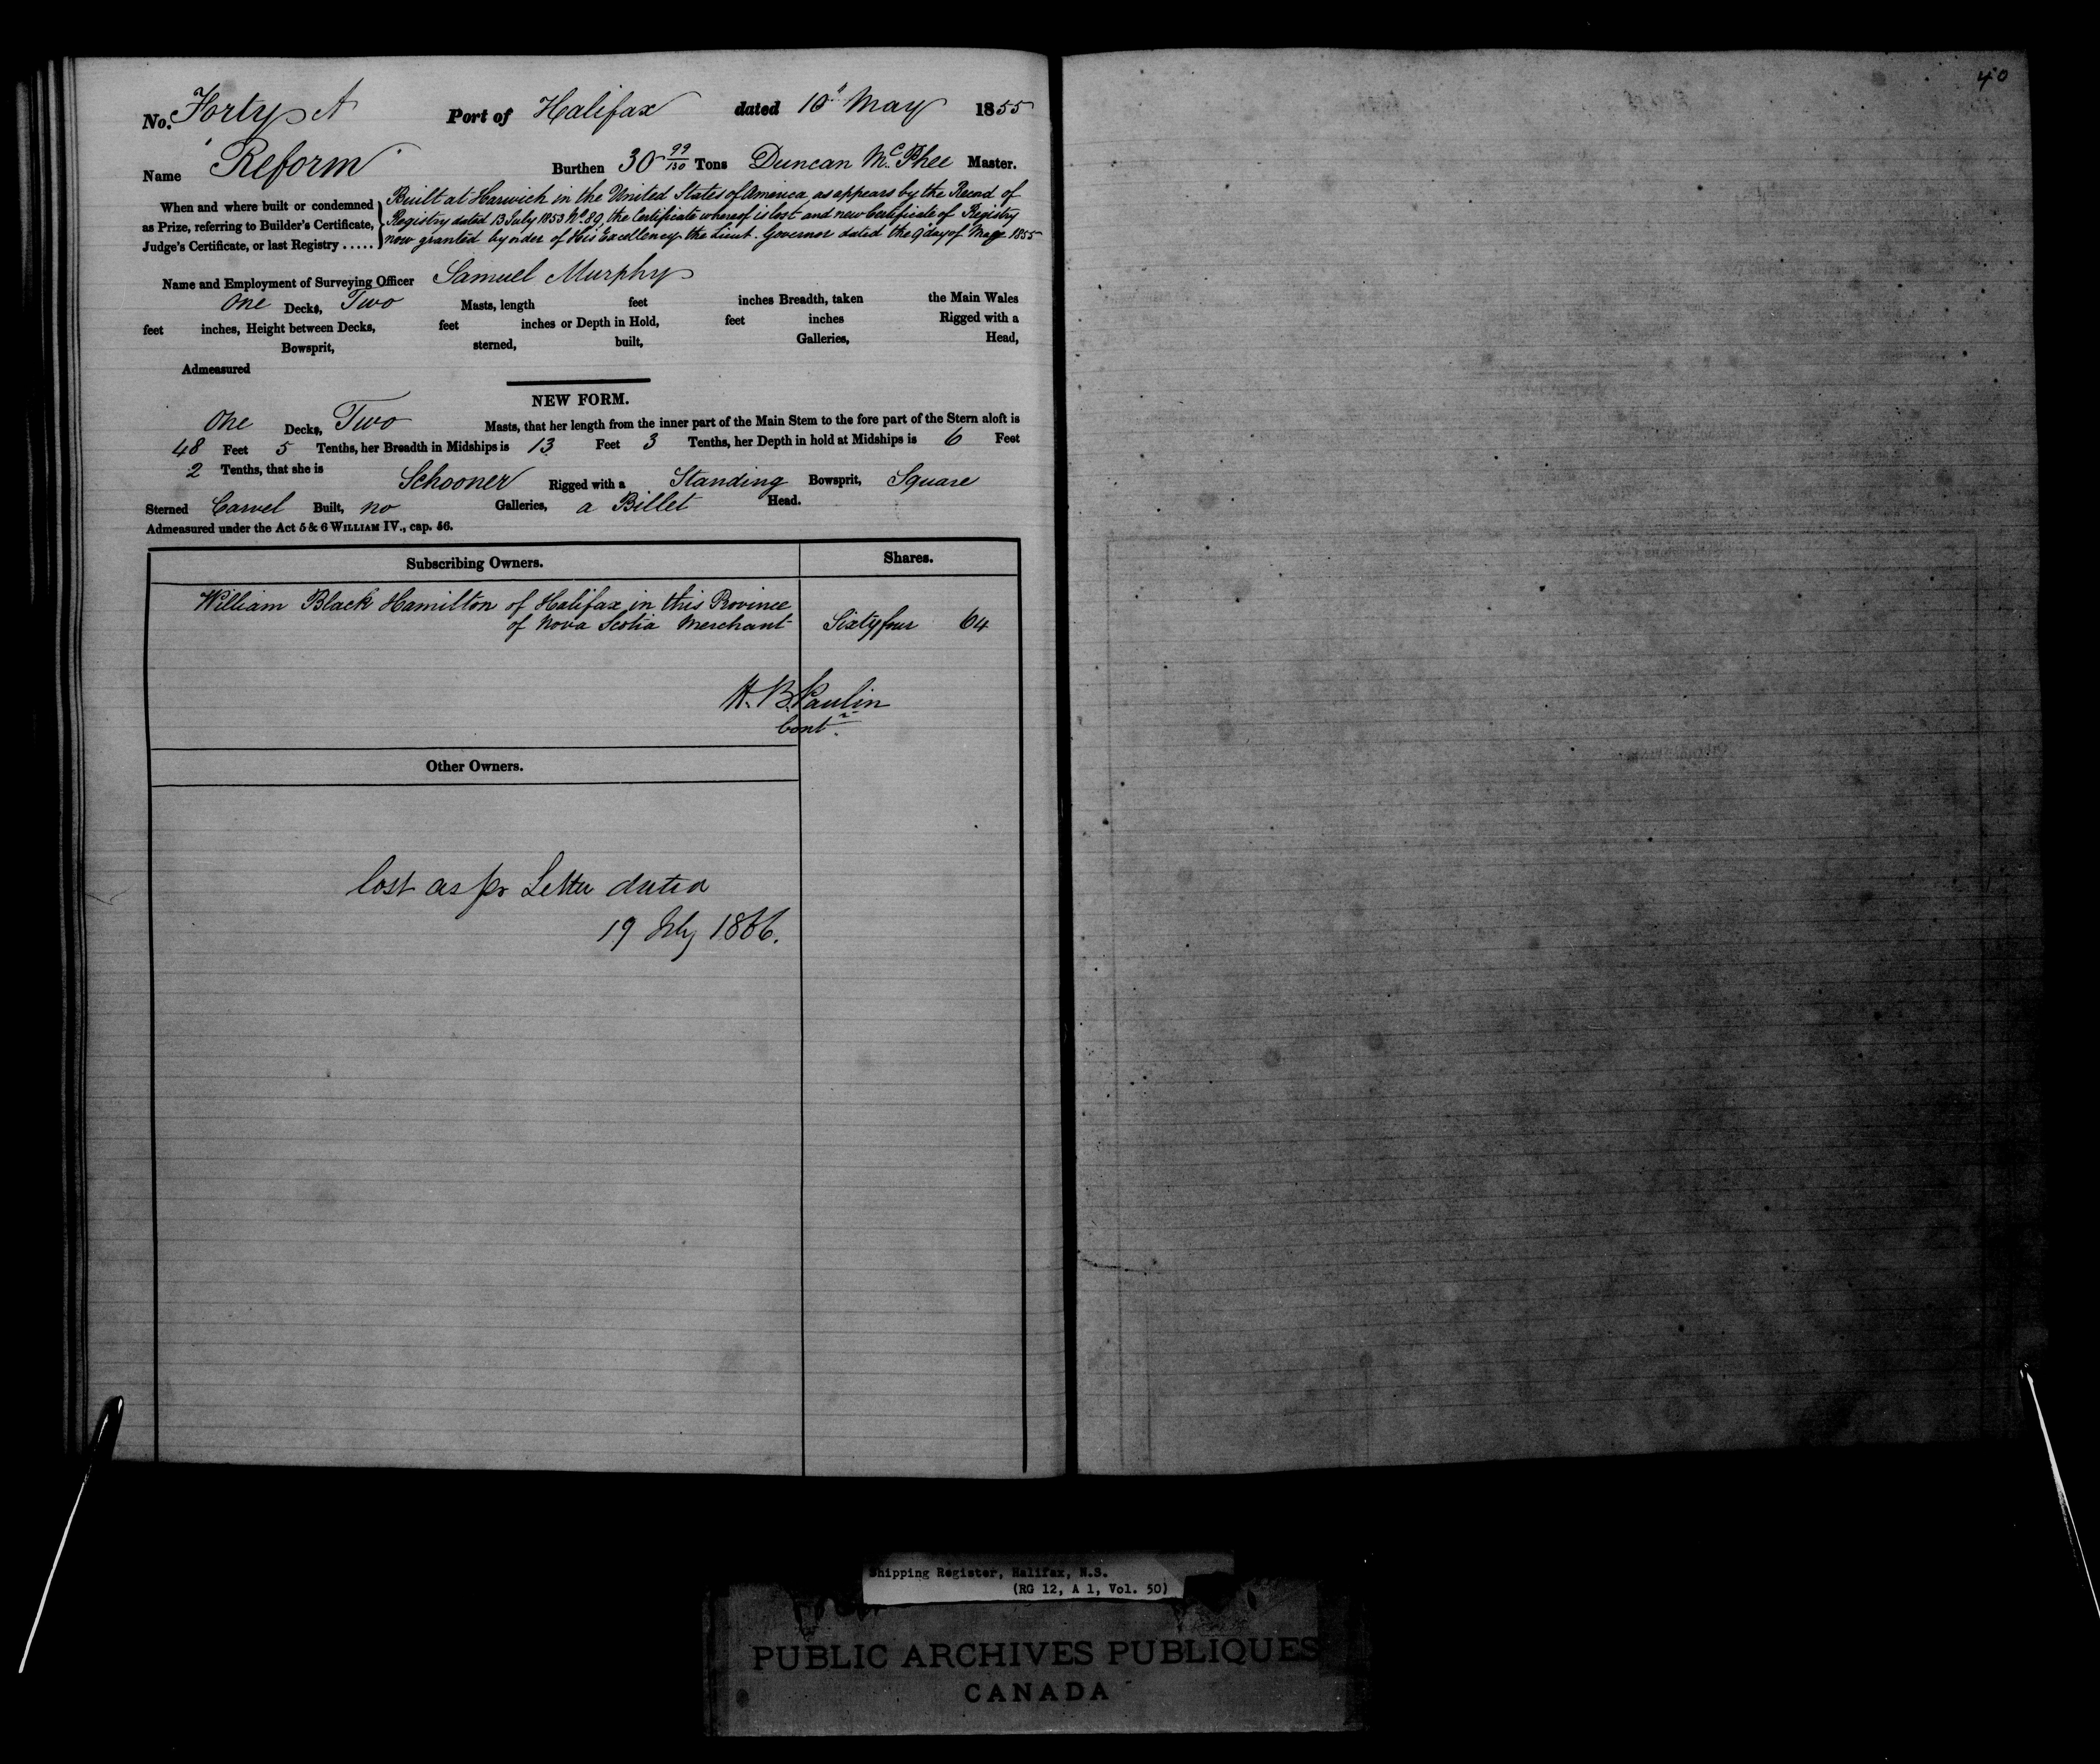 No. Forty A Port of Halifax dated 10" May 1855
Name "Reform" Burthen 30 99/130 Tons Duncan McPhee Master.
When and where built or condemned as Prize, referring to Builder's Certificate, Judge's Certificate, or last Registry .....
Built at Harwich in the United States of America, as appears by the Record of
Registry dated 13 July 1853 No. 89, the Certificate whereof is lost and new Certificate of Registry
now granted by order of His Excellency the Lieut. Governor dated the 9" day of May 1855
Name and Employment of Surveying Officer Samuel Murphy
One Decks, Two Masts, length feet inches Breadth, taken the Main Wales
feet inches, Height between Decks, feet inches or Depth in Hold, feet inches Rigged with a
Bowsprit, sterned, built, Galleries, Head,
Admeasured
NEW FORM.
One Decks, Two Masts, that her length from the inner part of the Main Stem to the fore part of the Stern aloft is
48 Feet 5 Tenths, her Breadth in Midships is 13 Feet 3 Tenths, her Depth in hold at Midships is 6 Feet
2 Tenths, that she is Schooner Rigged with a Standing Bowsprit, Square
Sterned Carvel Built, no Galleries, a Billet Head.
Admeasured under the Act 5 & 6 WILLIAM IV., cap. 56.
Subscribing Owners. Shares.
William Black Hamilton of Halifax in this Province
of Nova Scotia Merchant Sixtyfour 64
H. B. Paulin
Contr.
Other Owners.
lost as per Letter dated
19 July 1866.
40
Shipping Register, Halifax, N.S.
(RG 12, A 1, Vol. 50)
PUBLIC ARCHIVES PUBLIQUES
CANADA